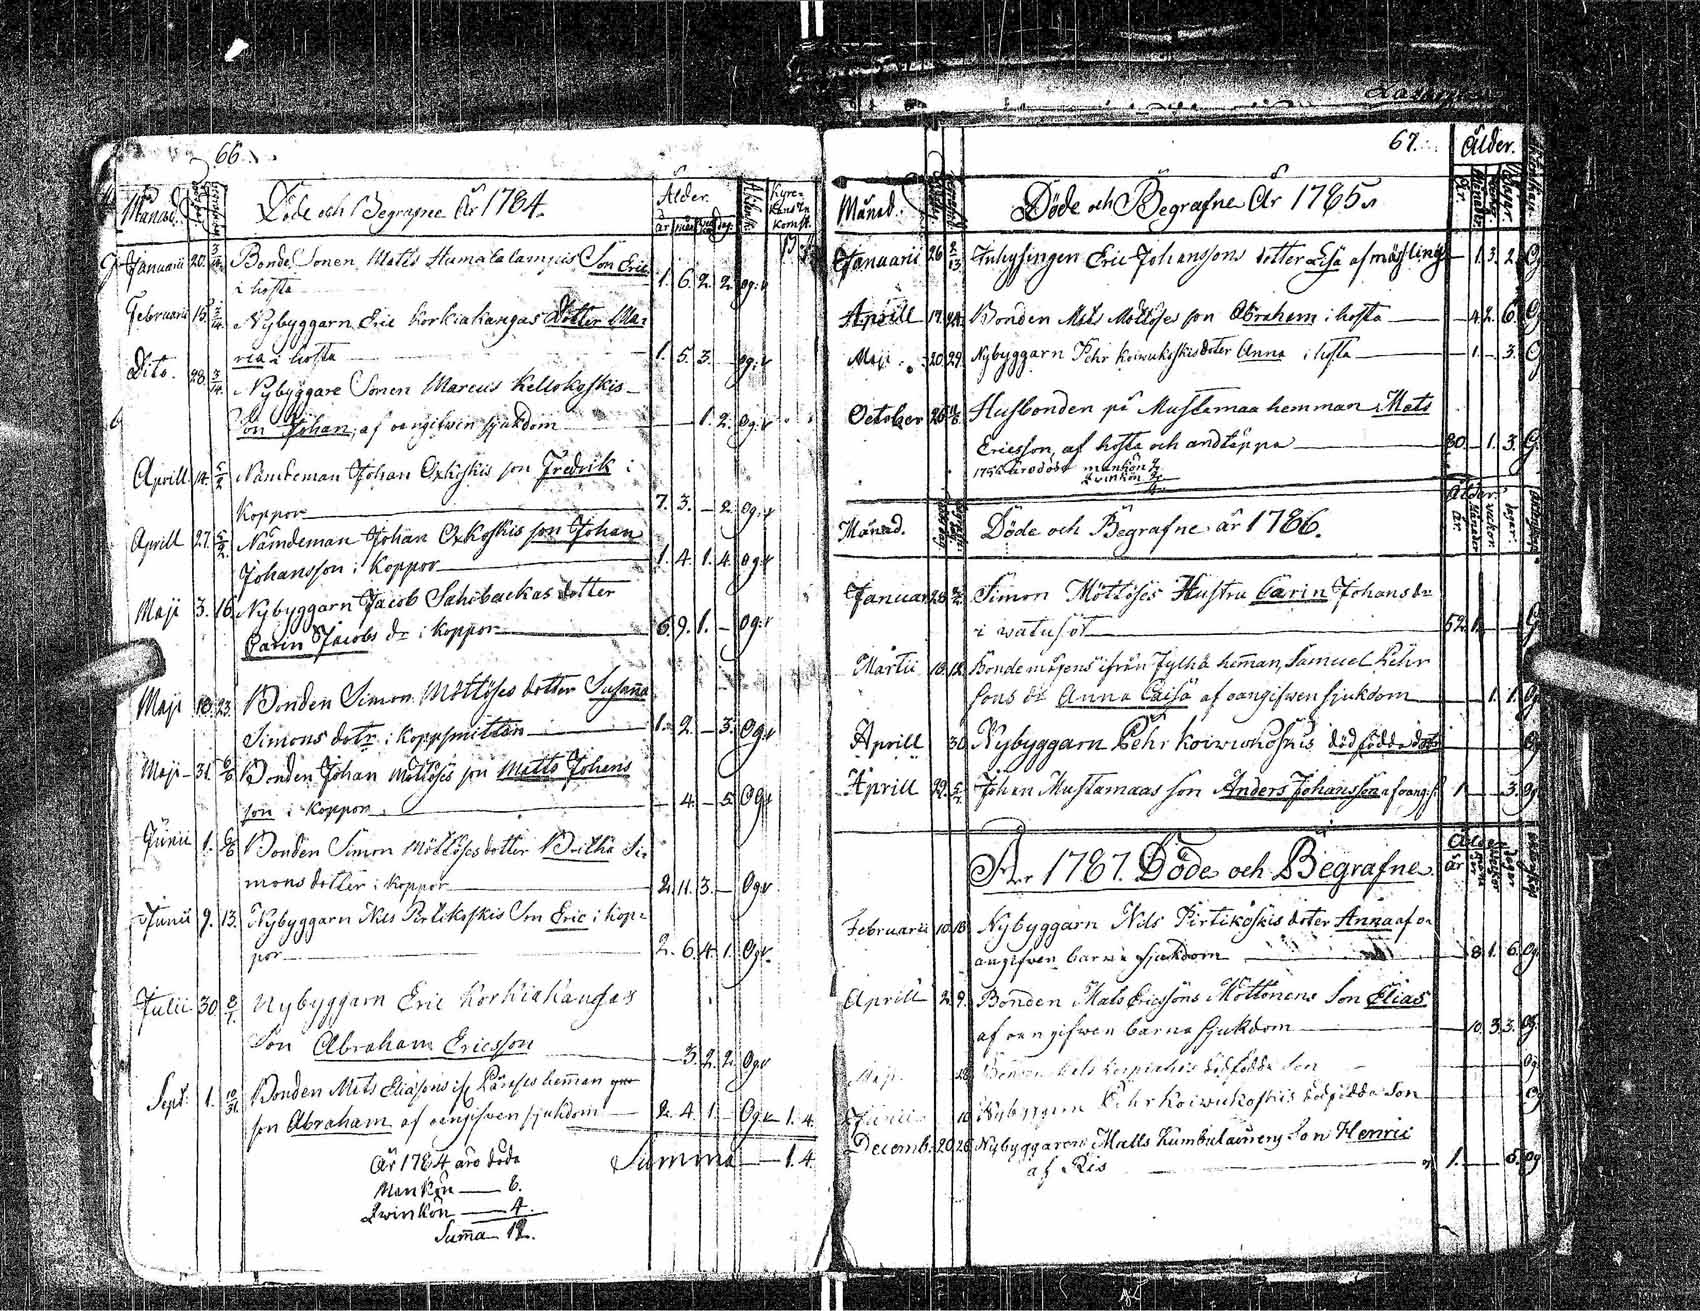 66.
Månad.
Döde och Begrafne År 1784.
Ålder.
år
Januarii 20. Bonde Sonen Mats Humalalampis Son Eric
i hosta 1. 6. 2. 2. og:v
Februarii 15. Nybyggarn Eric Korkiakangas Dotter Ma-
ria i hosta 1. 5. 3. og:v
Dito. 28. 3/14. Nybyggare Sonen Marcus Kellokoskis
Son Johan, af oangifwen sjukdom 1. 2. og:v
Aprill. 14. 5/2. Nämdeman Johan Oxkoskis son Fredrik i
Koppor 7. 3. - 2. og:v
Aprill 27. 5/2. Nämdeman Johan Oxkoskis son Johan
Johansson i Koppor 1. 4. 1. 4. og:v
Maji 3. 16. Nybyggarn Jacob Sahibackas dotter
Carin Jacobs dr i Koppor 6. 9. 1. - og:v
Maji 18. 23. Bonden Simon Möttöses dotter Susanna
Simons dotr i Koppsmitten 1. 2. - 3. Og:v
Maji 31. 6/6 Bonden Johan Möttöses son Matts Johans
son i Koppor 4. - 5. Og:v
Junii 1. 6/6 Bonden Simon Möttöses dotter Britha Si-
mons dotter i Koppor 2. 11. 3. - Og:v
Junii 9. 13. Nybyggarn Nils Pirtikoskis Son Eric i kop-
por 2. 6. 4. 1. Og:v
Julii 30. 8/7. Nybyggarn Eric Korkiakangas
Son Abraham Ericsson 3. 2. 2. Og:v
Sept. 1. 10/31. Bonden Mats Eliasons hemman
son Abraham af oangifwen sjukdom 2. 4. 1. - Og:v 1. 4.
År 1784 äro döda Summa 1. 4.
Mankön 8.
Qwinkön 4.
Summa 12.
67.
Ålder.
Månad.
Döde och Begrafne År 1785.
Januarii 26. 2/13. Inhysingen Eric Johanssons dotter Lisa af mäsling - 1. 3. 2. Og
Aprill 17. 24. Bonden Mats Möttöses son Abraham i hosta 4. 2. 6. Og
Maji 20. 29. Nybyggarn Pehr Koiwukoskis doter Anna i hosta 1. - 3. Og
October 26. Husbonden på Mustamaa hemman Mats
Ericsson, af hosta och andtäppa 30. - 1. 3. Og
äro döde mankön 2
Qwinkön 2
4.
Ålder.
Månad. Döde och Begrafne år 1786.
Januar Simon Möttöses Hustru Carin Johans dr
i watusot 52. 1.
Martii 10. 12. Bonde mågens ifrån Jylhä hemman Samuel Pehr
sons dr Anna Caisa af oangifwen sjukdom 1. 1. Og
Aprill 30 Nybyggarn Pehr Koiwukoskis död födde dotr Og
Aprill 22. Johan Mustamaas son Anders Johansson af oangif 1. - 3. Og
År 1787. Döde och Begrafne.
Ålder
Februarii 10. 18 Nybyggarn Nils Pirtikoskis doter Anna af o-
angifven barna sjukdom 8. 1. 6. Og
Aprill 2. 9. Bonden Mats Ericssons Möttönens Son Elias
af oangifwen barna sjukdom 10. 3. 3. Og
Maji dödfödde Son Og
Junii 10 Nybyggarn Pehr Koiwukoskis dödfödda Son Og
Decemb. 20. 26. Nybyggaren Matts Kumbulainens Son Henric
af Ris 1. - 5. Og